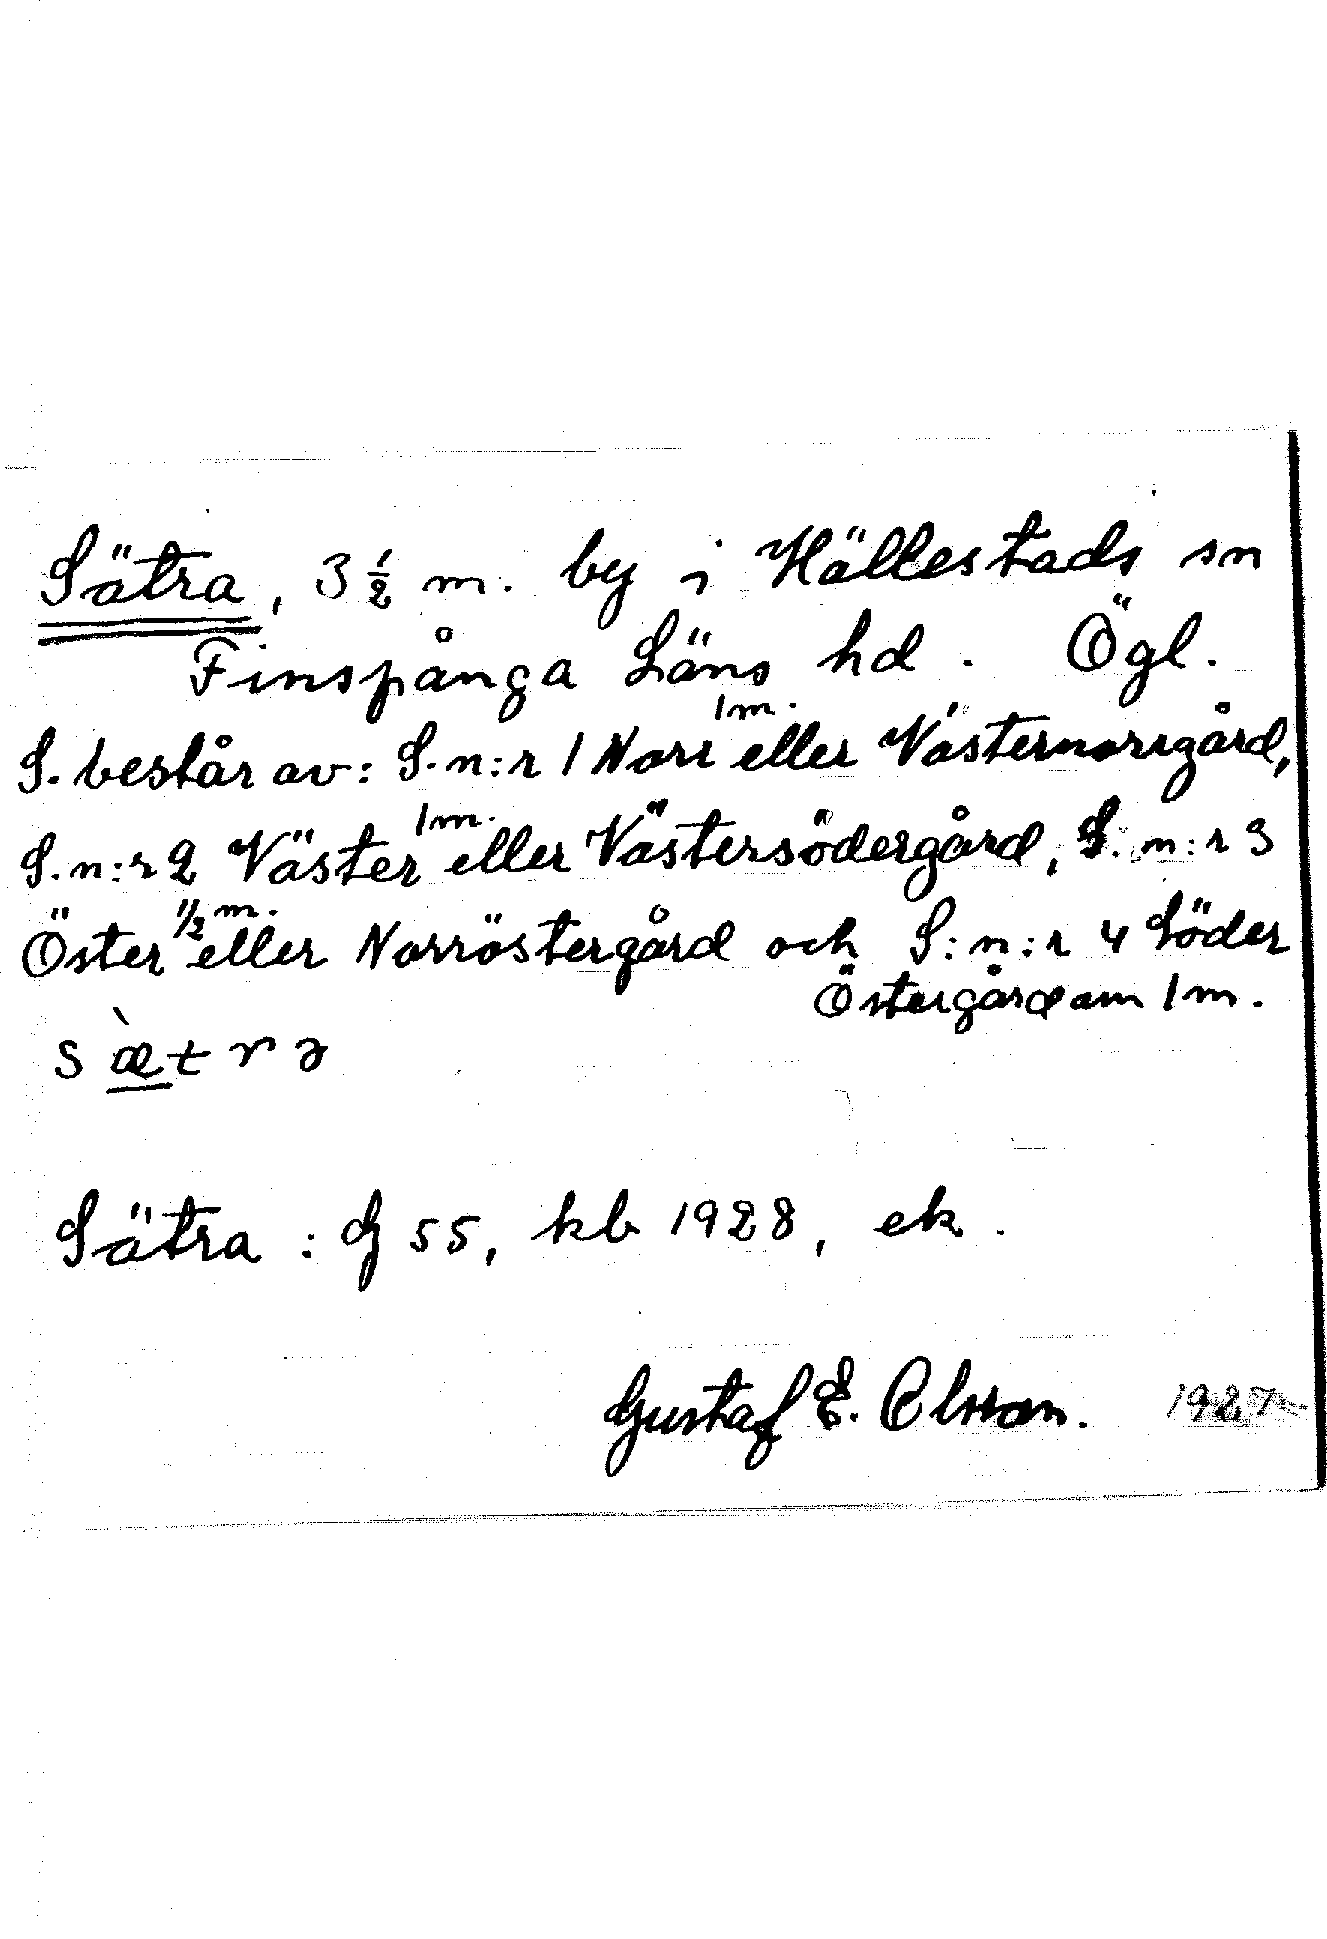 Sätra, 3 ½ m. by i Hällestads sn
Finspånga Läns hd. Ögl.
S. består av: S. n:r 1 Norr 1m. eller Västernorrgård,
S. n:r 2 Väster 1m. eller Västersödergård, S. n:r 3
Öster 1/2 m. eller Norröstergård och S: n:r 4 Söder
Östergård om 1 m.
s æ̀ t r ə
Sätra : G 55, kb 1928, ek.
Gustaf E. Olsson. 1927